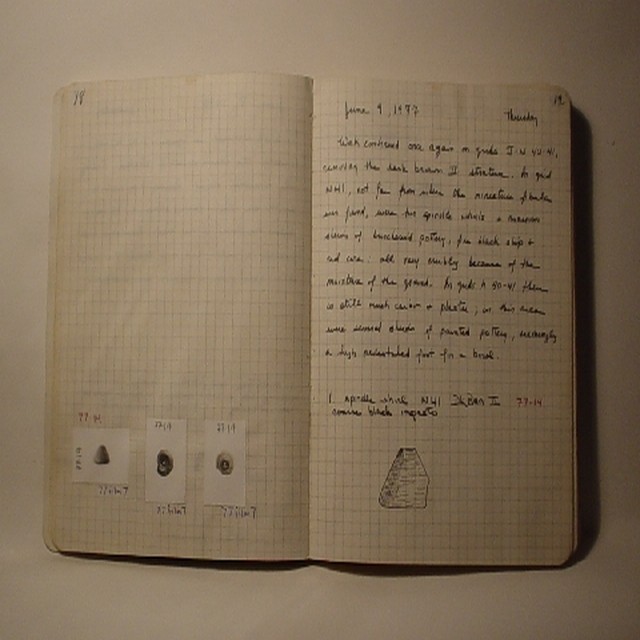 18
77-14
77-14
77 film 7
77-14
77 film 7
77-14
77 film 7
19
June 9, 1977
Thursday
Work continued once again in grids I N 40-41,
removing the dark brown II stratum. In grid
N41, not far from where the miniature
was found, were two spindle whorls & numerous
sherds of bucchero pottery, fine black slip &
red core. All very crumbly because of the
moisture of the ground. In grids N 40-41 there
is still much & plaster; in this area
were several sherds of painted pottery, including
a high pedestaled foot for a bowl.
1. spindle whorl N41 II 77-14
coarse black impasto